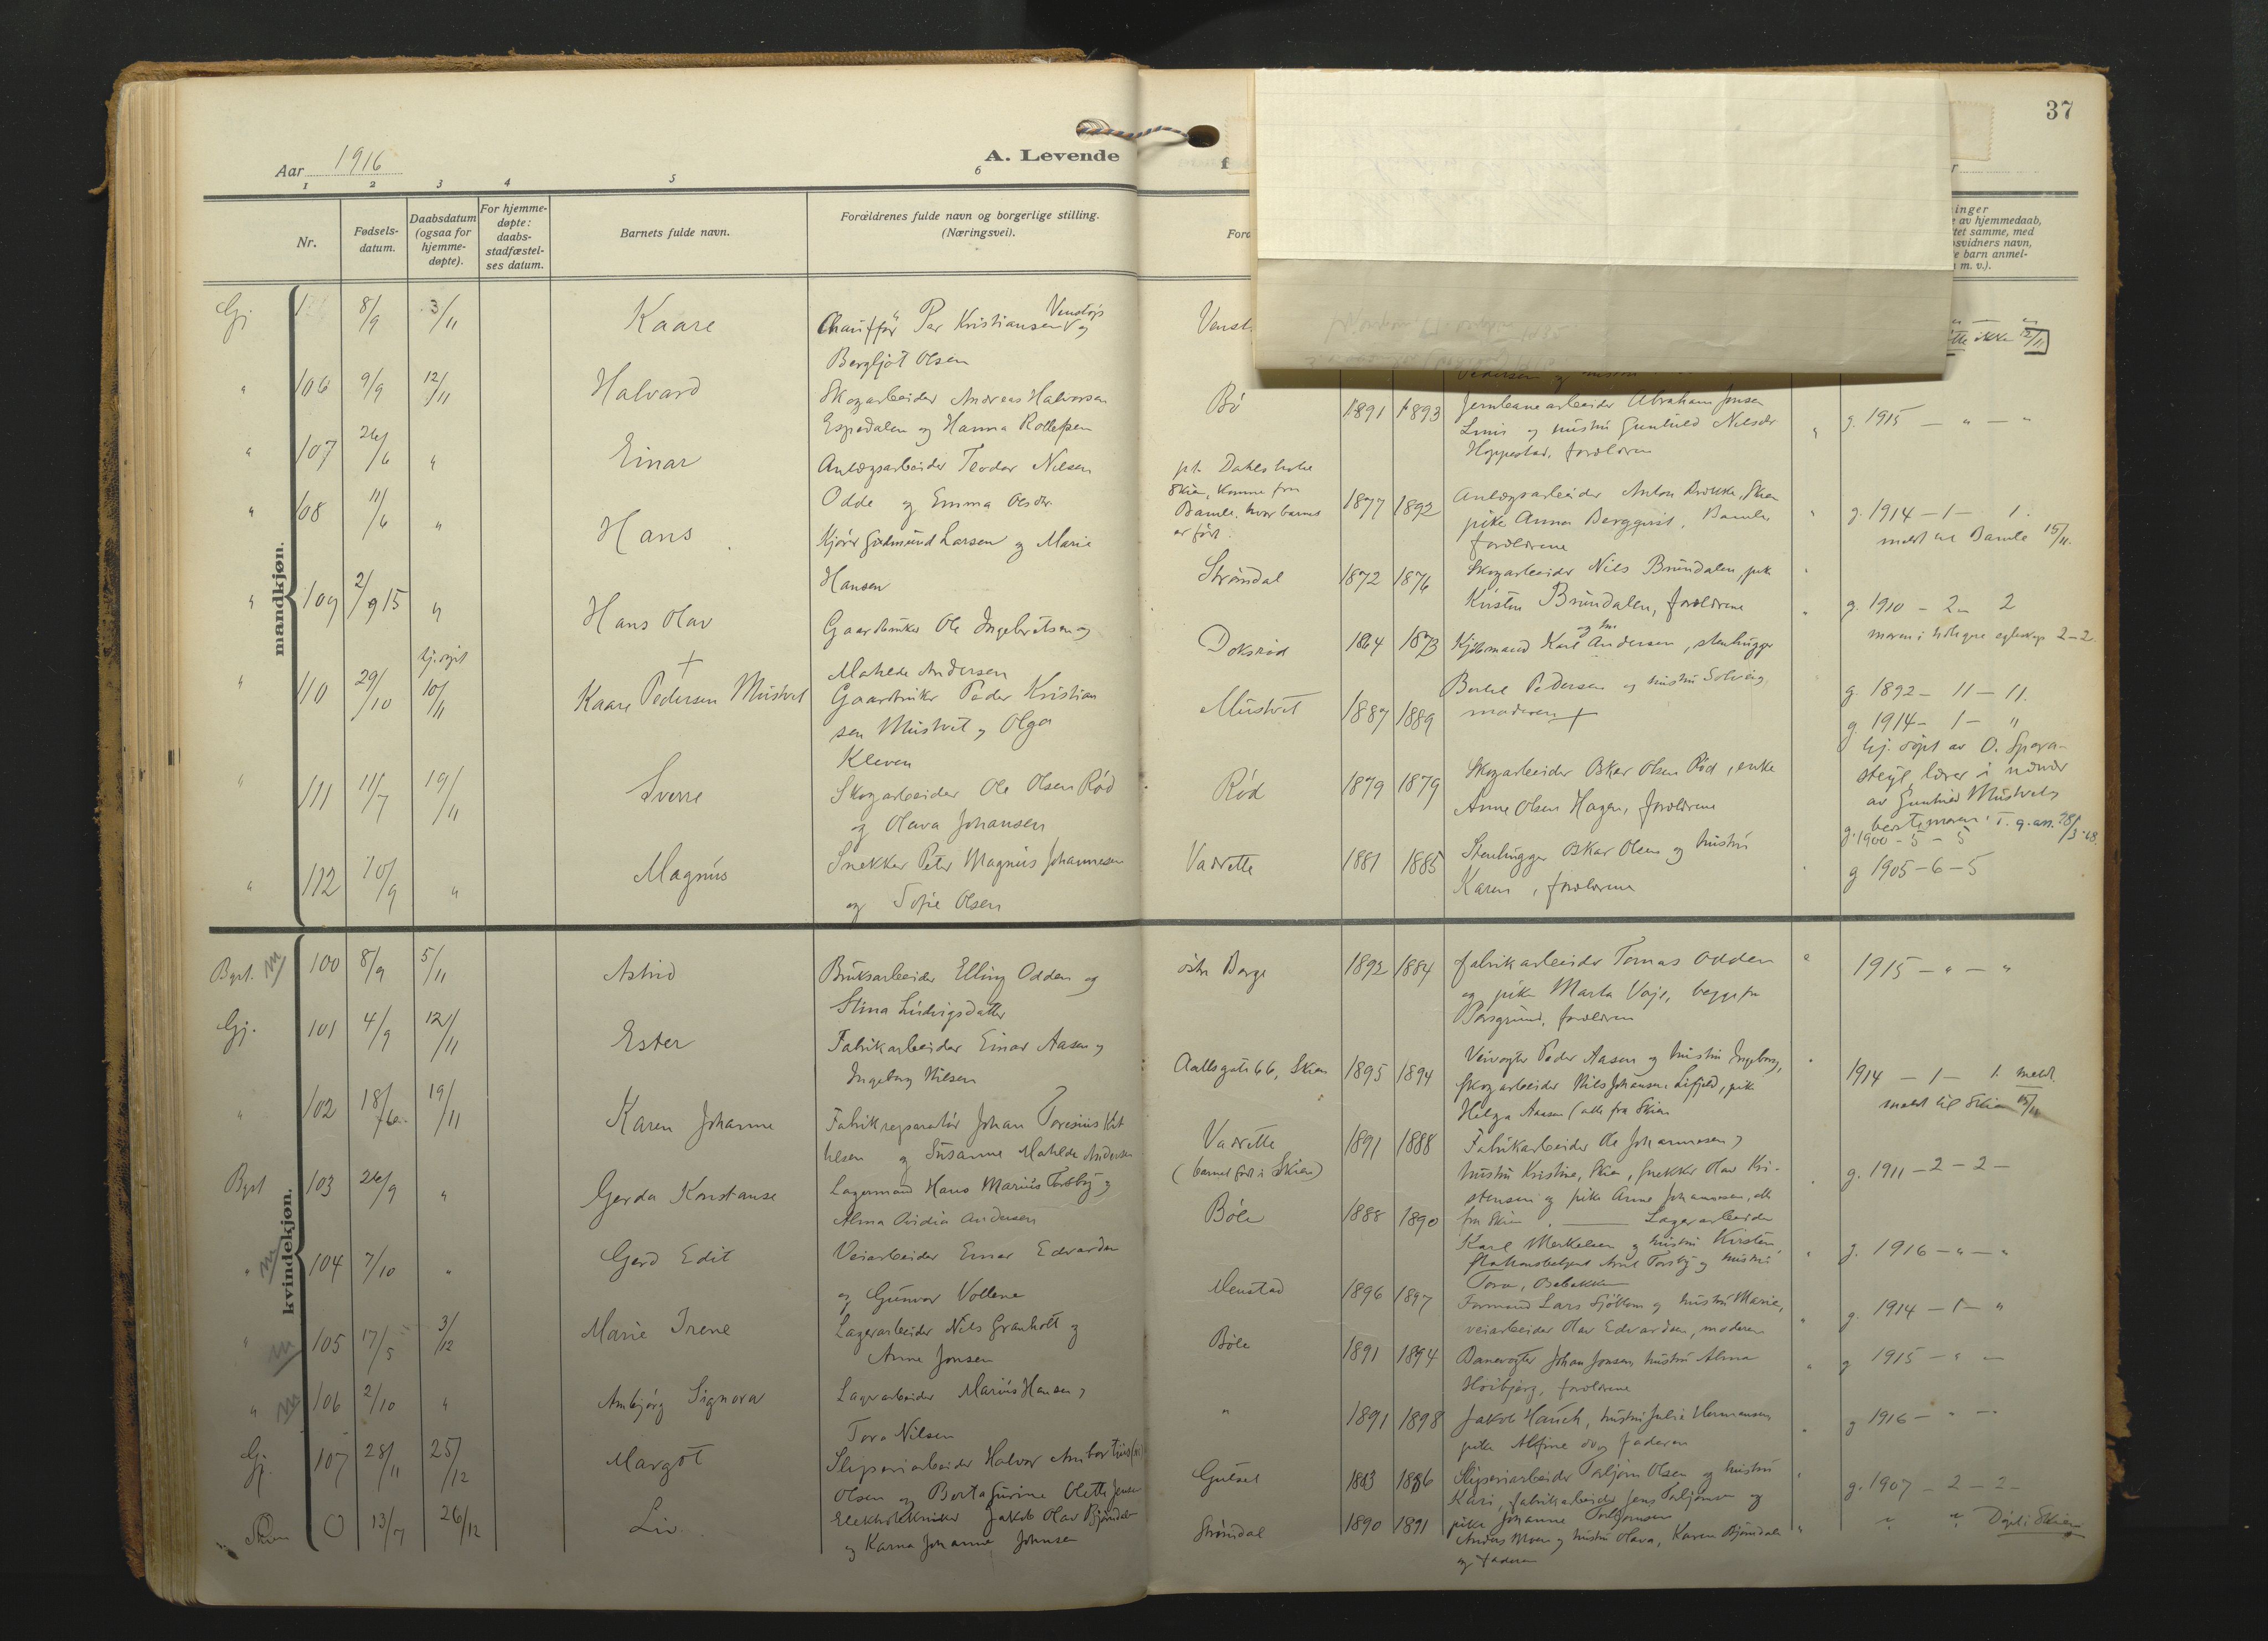 37
Aar 1916
A. Levende
f
r
1 2 3 4 5 6
Nr.
Fødsels-
datum.
Daabsdatum
(ogsaa for
hjemme-
døpte).
For hjemme-
døpte:
daabs-
stadfæstel-
ses datum.
Barnets fulde navn.
Forældrenes fulde navn og borgerlige stilling.
(Næringsvei).
Foræ
inger
e av hjemmedaab,
tet samme, med
svidners navn,
e barn anmel-
m. v.).
mandkjøn.
Gj 1 8/9 3/11 Kaare Chauffør Per Kristiansen Venstøp og
Bergljot Olsen
Venst
ikke 12/11
" 106 9/9 12/11 Halvard Skogarbeider Andreas Halvorsen
Espedalen og Hanna Rollefsen
Bø 1891 1893 Jernbanearbeider Abraham Jonsen
Linis og hustru Gunhild Nilsdr
Hoppestad, forældrene
" g. 1915 — " — "
" 107 26/6 " Einar Anlægsarbeider Teodor Nilsen
Odde og Emma Olsdtr
pt. Dahls
Skien, komme fra
Bamle, hvor barnet
er født.
1877 1892 Anlægsarbeider Anton , Skien
pike Anna Bergqvist, Bamle
forældrene
" g. 1914 — 1 — 1.
meldt til Bamle 15/11.
" 108 11/6 " Hans Kjører Gudmund Larsen og Marie
Hansen
Strømdal 1872 1876 Skogarbeider Nils Brundalen, pike
Kirsten Brundalen, forældrene
" g. 1910 — 2 — 2
" 109 2/9 15 " Hans Olav Gaardbruker Ole Ingebretsen og
Matilde Andersen
Doksrød 1864 1873 Kjøbmand Karl Andersen og hu, stenhugger
Bertel Pedersen og hustru Solveig,
moderen +
moren i tidligere egteskap 2-2.
g. 1892 — 11 — 11.
" 110 29/10 hj. døpt 10/11 + Kaare Pedersen Mustvet Gaardbruker Peder Kristian
sen Mustvet og Olga
Kleven
Mustvet 1887 1889
g 1914 — 1 — "
hj. døpt av O. Spora-
steyl, lærer i nærvær
av Gunhild Mustvet,
bestemoren. T. g. an. 18/3-18.
" 111 11/7 19/11 Sverre Skogarbeider Ole Olsen Rød
og Olava Johansen
Rød 1879 1879 Skogarbeider Oskar Olsen Rød, enke
Anne Olsen Hagen, forældrene
g. 1900 — 5 — 5
" 112 10/9 " Magnus Snekker Peter Magnus Johannesen
og Sofie Olsen
Vadrette 1881 1885 Stenhugger Oskar Olsen og hustru
Karen, forældrene
g 1905 — 6 — 5
kvindekjøn.
Bgst. m 100 8/9 5/11 Astrid Bruksarbeider Elling Odden og
Stina Ludvigsdatter
østre Borge 1892 1884 fabrikarbeider Tomas Odden
og pike Marta Vaje, begge fra
Porsgrund, forældrene
" 1915 — " — "
Gj. 101 4/9 12/11 Ester Fabrikarbeider Einar Aasen og
Ingeborg Nilsen
Aallsgate 66, Skien 1895 1894 Veivogter Peder Aasen og hustru Ingeborg,
skogarbeider Nils Johansen Lifjeld, pike
Helga Aasen (alle fra Skien
" 1914 — 1 — 1. meldt
meldt til Skien 15/11
" 102 18/6 19/11 Karen Johanne Fabrikreparatør Johan Toresius Kit
tilsen og Susanne Matilde Andersen
Vadrette
(barnet født i Skien)
1891 1888 Fabrikarbeider Ole Johannesen og
hustru Kristine, Skien, snekker Olav Kri-
stensen og pike Anne Johannesen, alle
fra Skien
g. 1911 — 2 — 2 —
Bgst 103 26/9 " Gerda Konstanse Lagermand Hans Marius Torsby og
Alma Ovidia Andersen
Bøle 1888 1890 Lagerarbeider
Karl Merkelsen og hustru Kirsten,
stationsbetjent Arnt Torsby og hustru
Tora, Osebakken
" g. 1916 — " — "
" m 104 7/10 " Gerd Edit Veiarbeider Einar Edvardsen
og Gunvor Vollene
Menstad 1896 1897 Formand Lars Sjøtten og hustru Marie,
veiarbeider Olav Edvardsen, moderen
" g. 1914 — 1 — "
" m 105 17/5 3/12 Marie Irene Lagerarbeider Nils Granholt og
Anne Jonsen
Bøle 1891 1894 Banevogter Johan Jonsen, hustru Alma
Høibjerg, forældrene
" g 1915 — " —
" m 106 2/10 " Ambjørg Signora Lagerarbeider Marius Hansen og
Tora Nilsen
" 1891 1898 Jakob Hauch, hustru Julie Hermansen,
pike Alfine og faderen
g 1916 — " —
Gj. 107 28/11 25/12 Margot Sliperiarbeider Halvor Ambortius
Olsen og Berta Gurine Olette Jensen
Gulset 1883 1886 Sliperiarbeider Torbjørn Olsen og hustru
Kari, fabrikarbeider Jens Torbjørnsen og
pike Johanne Torbjørnsen
" g. 1907 — 2 — 2 —
" Skien O 13/7 26/12 Liv Elektrotekniker Jakob Olav Bjørndalen
og Karna Johanne Johnsen
Strømdal 1890 1891 Anders Moen og hustru Olava, Karen Bjørndalen
og faderen
" " " Døpt i Skien